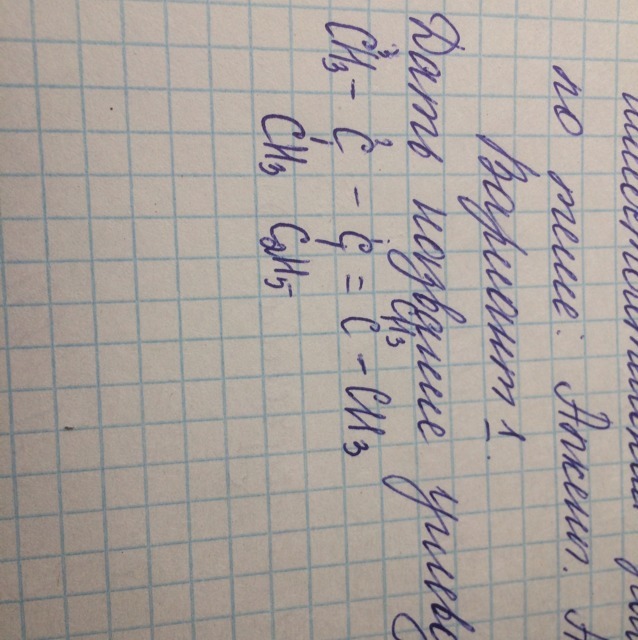 по теме: Алкен. А
Вариант 1.
Дать название углево
CH₃
CH₃ - C - C = C - CH₃
CH₃ C₂H₅